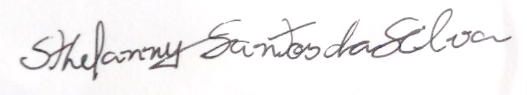 Sthefanny Santos da Silva